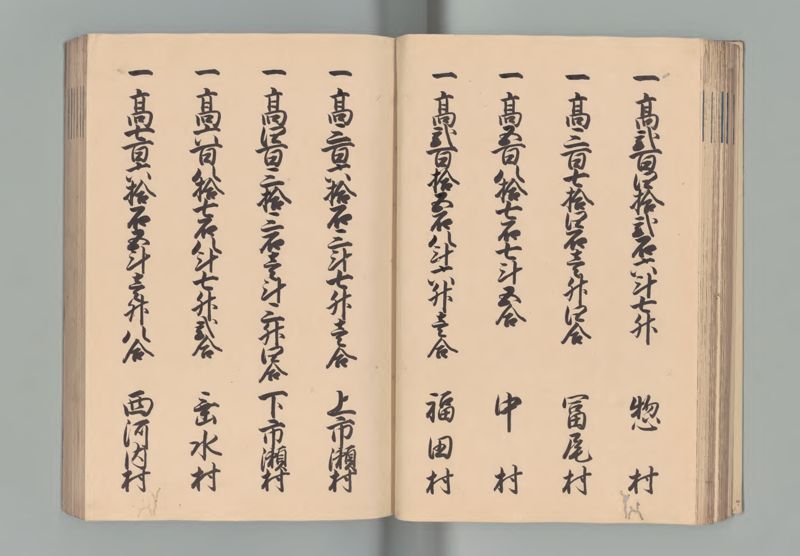 一高弐百四拾弐石六斗七升 惣村
一高三百七拾四石壱升四合 冨尾村
一高五百八拾七石七斗五合 中村
一高弐百拾五石八斗六升壱合 福田村
一高三百六拾石三斗七升壱合 上市瀬村
一高四百三拾三石壱斗三升四合 下市瀬村
一高六百八拾七石八斗七升弐合 水村
一高七百六拾石五斗壱升八合 西河内村